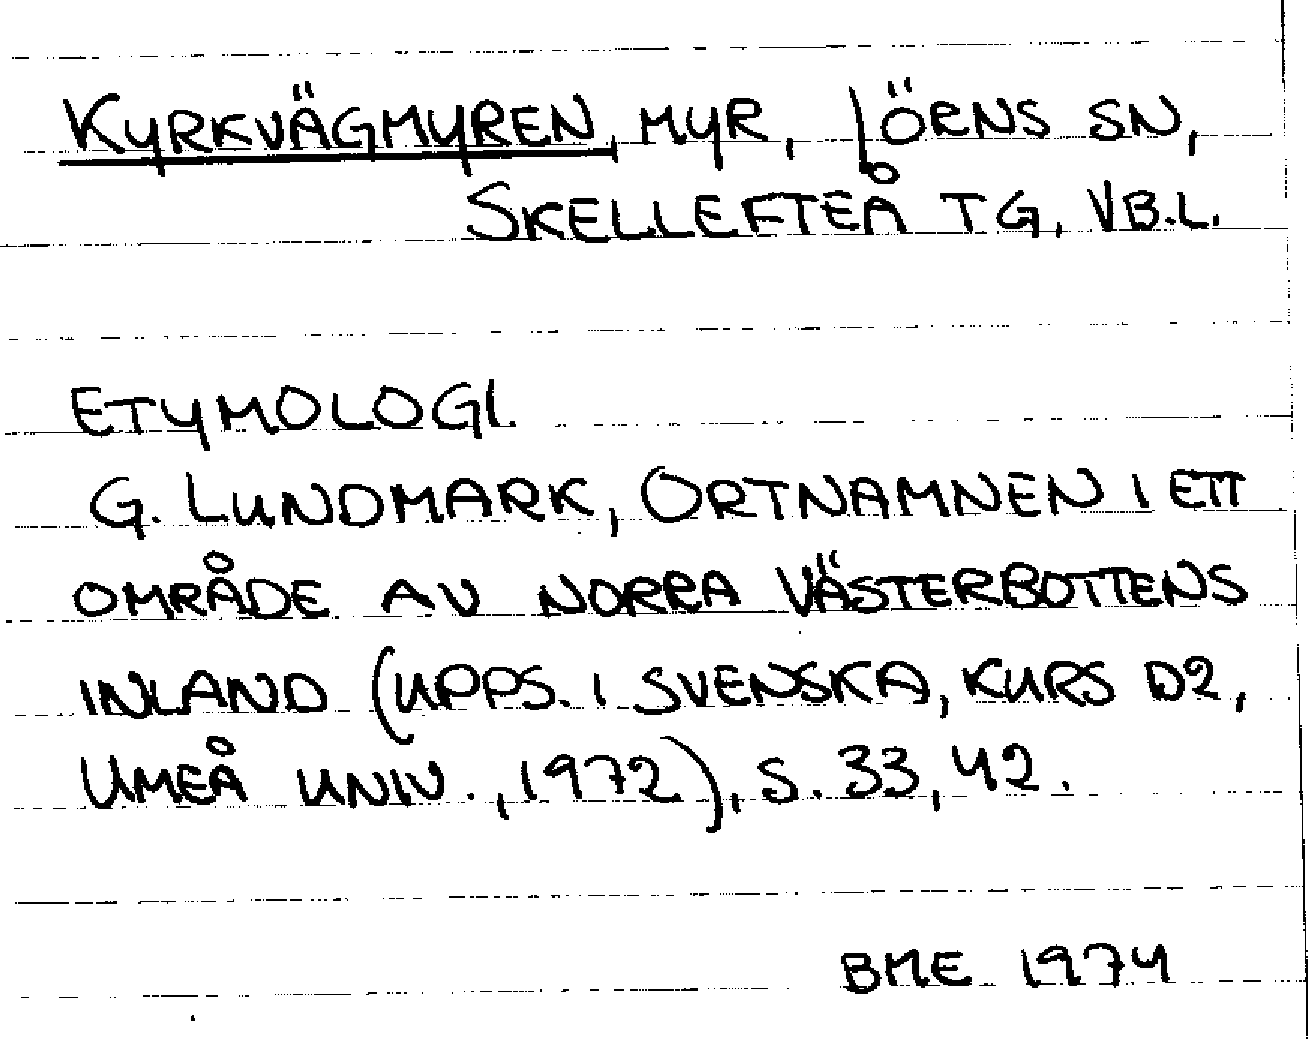 KYRKVÄGMYREN, MYR, JÖRNS SN,
SKELLEFTEÅ TG, VB.L.
ETYMOLOGI.
G. LUNDMARK, ORTNAMNEN I ETT
OMRÅDE AV NORRA VÄSTERBOTTENS
INLAND (UPPS. I SVENSKA, KURS D2,
UMEÅ UNIV., 1972), S. 33, 42.
BME 1974